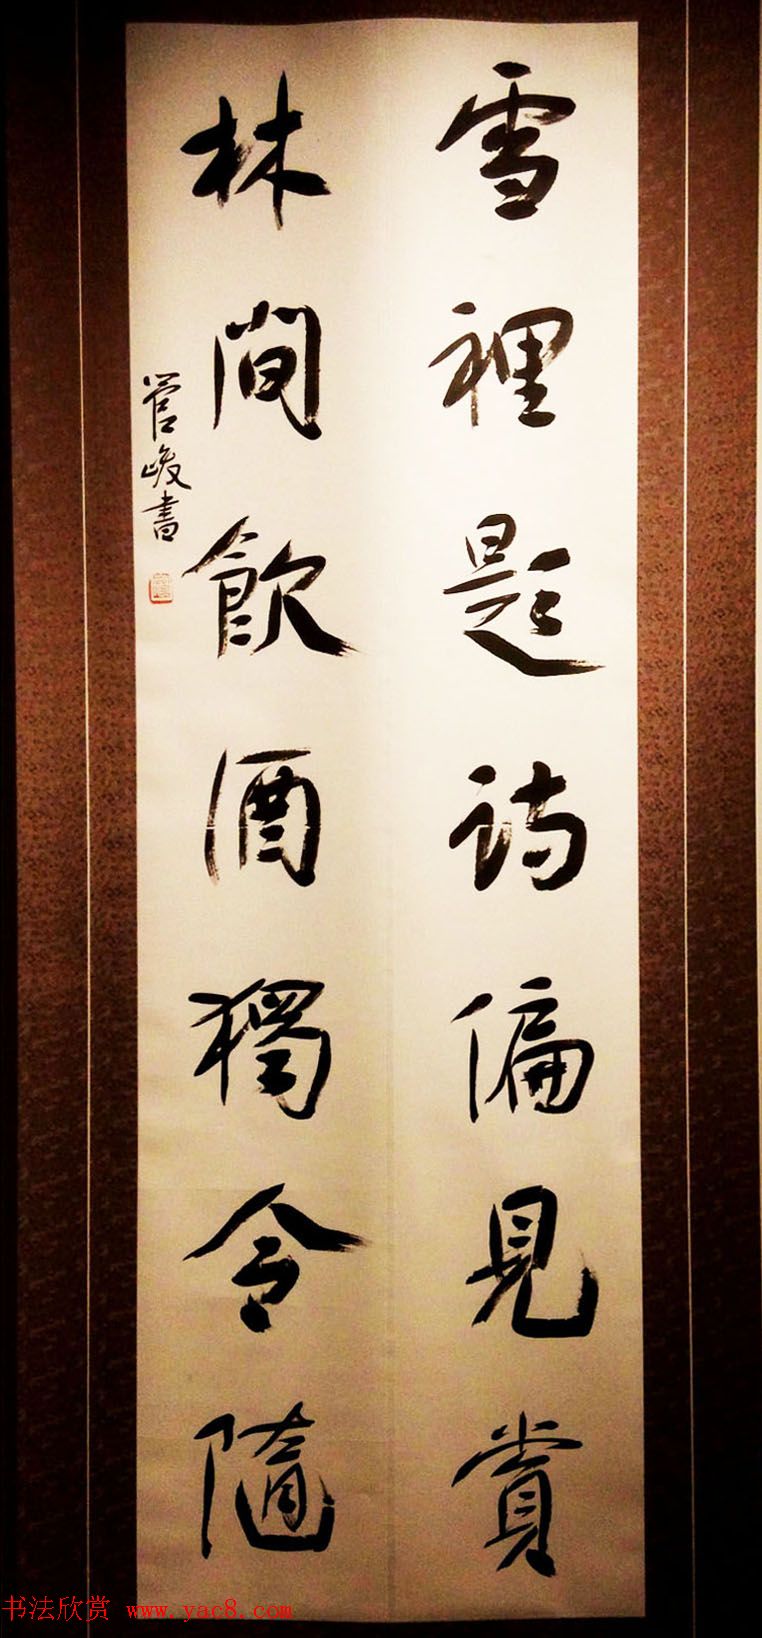 雪裡題詩偏見賞
林間飲酒獨令隨
管峻書
书法欣赏 www.yac8.com